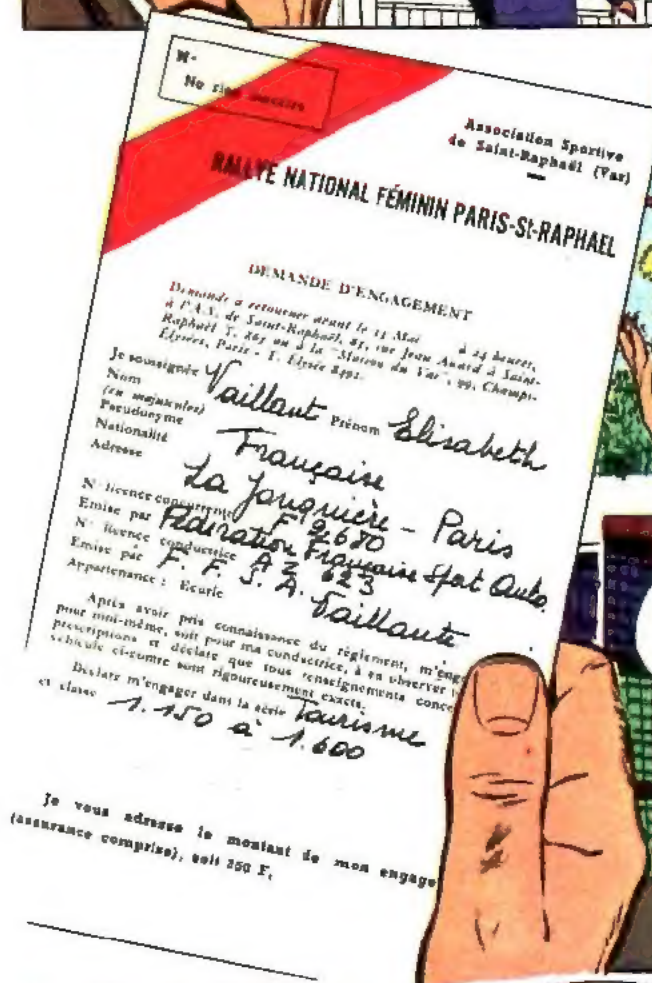 N°
Ne rien inscrire
Association Sportive
de Saint-Raphaël (Var)
RALLYE NATIONAL FÉMININ PARIS-St-RAPHAEL
DEMANDE D'ENGAGEMENT
Demande à retourner avant le 14 Mai à 24 heures,
à l'A.S. de Saint-Raphaël, rue Jean Aicard à Saint-
Raphaël T. 265 ou à la "Maison du Var", Champs-
Élysées, Paris - T. Élysée
Je soussignée
Nom Vaillant Prénom Elisabeth
(en majuscules)
Pseudonyme
Nationalité Française
Adresse La Jonquière - Paris
N° licence concurrente F 2680
Emise par Fédération Française Sport Auto.
N° licence conductrice AZ 623
Emise par F. F. S. A.
Appartenance : Ecurie Vaillante
Après avoir pris connaissance du règlement, m'eng
pour moi-même, soit pour ma conductrice, à en observer
prescriptions et déclare que tous renseignements conce
véhicule ci-contre sont rigoureusement exacts.
Déclare m'engager dans la série Tourisme
et classe 1.150 à 1.600
Je vous adresse le montant de mon engage
(assurance comprise), soit 250 F.